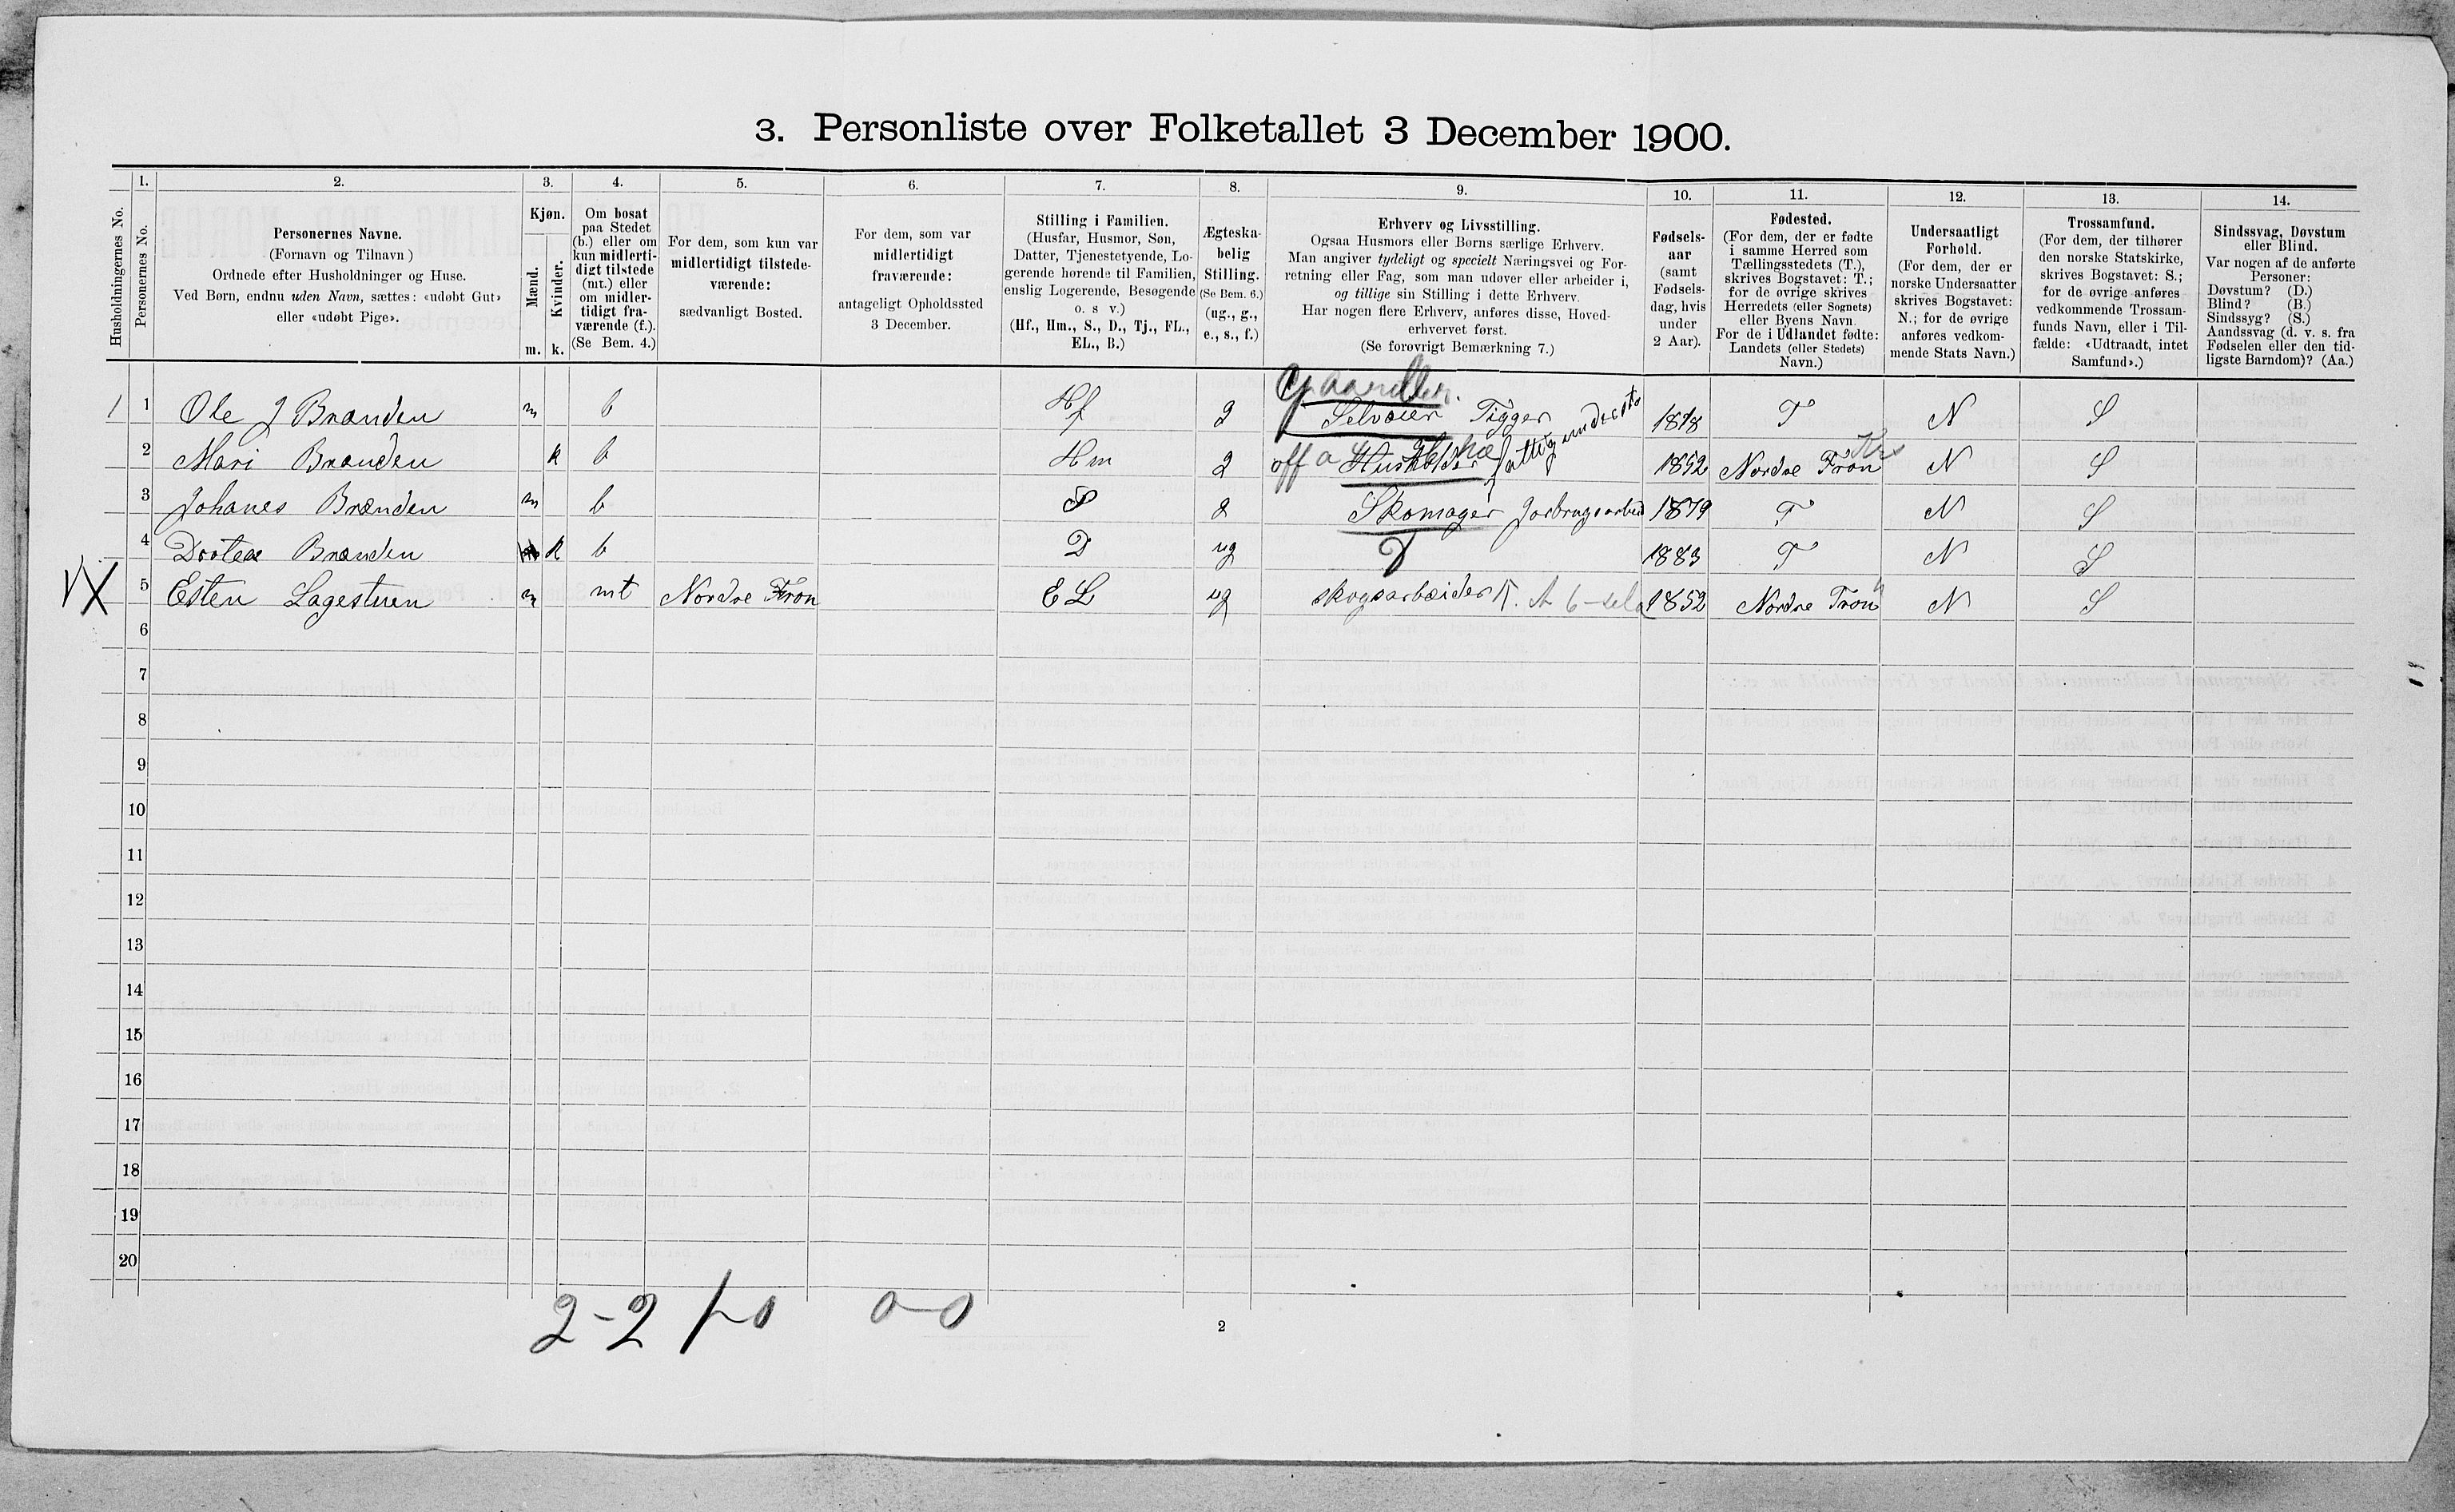 3. Personliste over Folketallet 3 December 1900.
Husholdningernes No.
1.
Personernes No.
2.
Personernes Navne.
(Fornavn og Tilnavn)
Ordnede efter Husholdninger og Huse.
Ved Børn, endnu uden Navn, sættes: «udøbt Gut»
eller «udøbt Pige».
3.
Kjøn.
Mænd.
Kvinder.
m. k.
4.
Om bosat
paa Stedet
(b.) eller om
kun midlerti-
digt tilstede
(mt.) eller
om midler-
tidigt fra-
værende (f.).
(Se Bem. 4.)
5.
For dem, som kun var
midlertidigt tilstede-
værende:
sædvanligt Bosted.
6.
For dem, som var
midlertidigt
fraværende:
antageligt Opholdssted
3 December.
7.
Stilling i Familien.
(Husfar, Husmor, Søn,
Datter, Tjenestetyende, Lo-
gerende hørende til Familien,
enslig Logerende, Besøgende
o. s v.)
(Hf., Hm., S., D., Tj., FL.,
EL., B.)
8.
Ægteska-
belig
Stilling.
(Se Bem. 6.)
(ug., g.,
e., s., f.)
9.
Erhverv og Livsstilling.
Ogsaa Husmors eller Børns særlige Erhverv.
Man angiver tydeligt og specielt Næringsvei og For-
retning eller Fag, som man udøver eller arbeider i,
og tillige sin Stilling i dette Erhverv.
Har nogen flere Erhverv, anføres disse, Hoved-
erhvervet først.
(Se forøvrigt Bemærkning 7.)
10.
Fødsels-
aar
(samt
Fødsels-
dag, hvis
under
2 Aar).
11.
Fødested.
(For dem, der er fødte
i samme Herred som
Tællingsstedets (T.),
skrives Bogstavet: T.;
for de øvrige skrives
Herredets (eller Sognets)
eller Byens Navn.
For de i Udlandet fødte:
Landets (eller Stedets)
Navn.)
12.
Undersaatligt
Forhold.
(For dem, der er
norske Undersaatter
skrives Bogstavet:
N.; for de øvrige
anføres vedkom-
mende Stats Navn.)
13.
Trossamfund.
(For dem, der tilhører
den norske Statskirke,
skrives Bogstavet: S.;
for de øvrige anføres
vedkommende Trossam-
funds Navn, eller i Til-
fælde: «Udtraadt, intet
Samfund».)
14.
Sindssvag, Døvstum
eller Blind.
Var nogen af de anførte
Personer:
Døvstum? (D.)
Blind? (B.)
Sindssyg? (S.)
Aandssvag (d. v. s. fra
Fødselen eller den tid-
ligste Barndom)? (Aa.)
1 1 Ole J Brænden m b Hf g Selveier Tigger 1818 T N S
2 Mari Brænden k b Hm g 1852 Nordre Fron N S
3 Johanes Brænden m b S g Skomager Jorbrugsarbeid 1879 T N S
4 Dortea Brænden k b D ug 1883 T N S
X 5 Esten Lagestuen m mt Nordre Fron EL ug skogsarbeider 1852 Nordre Fron N S
6
7
8
9
10
11
12
13
14
15
16
17
18
19
20
2-2 1-0 0-0
2